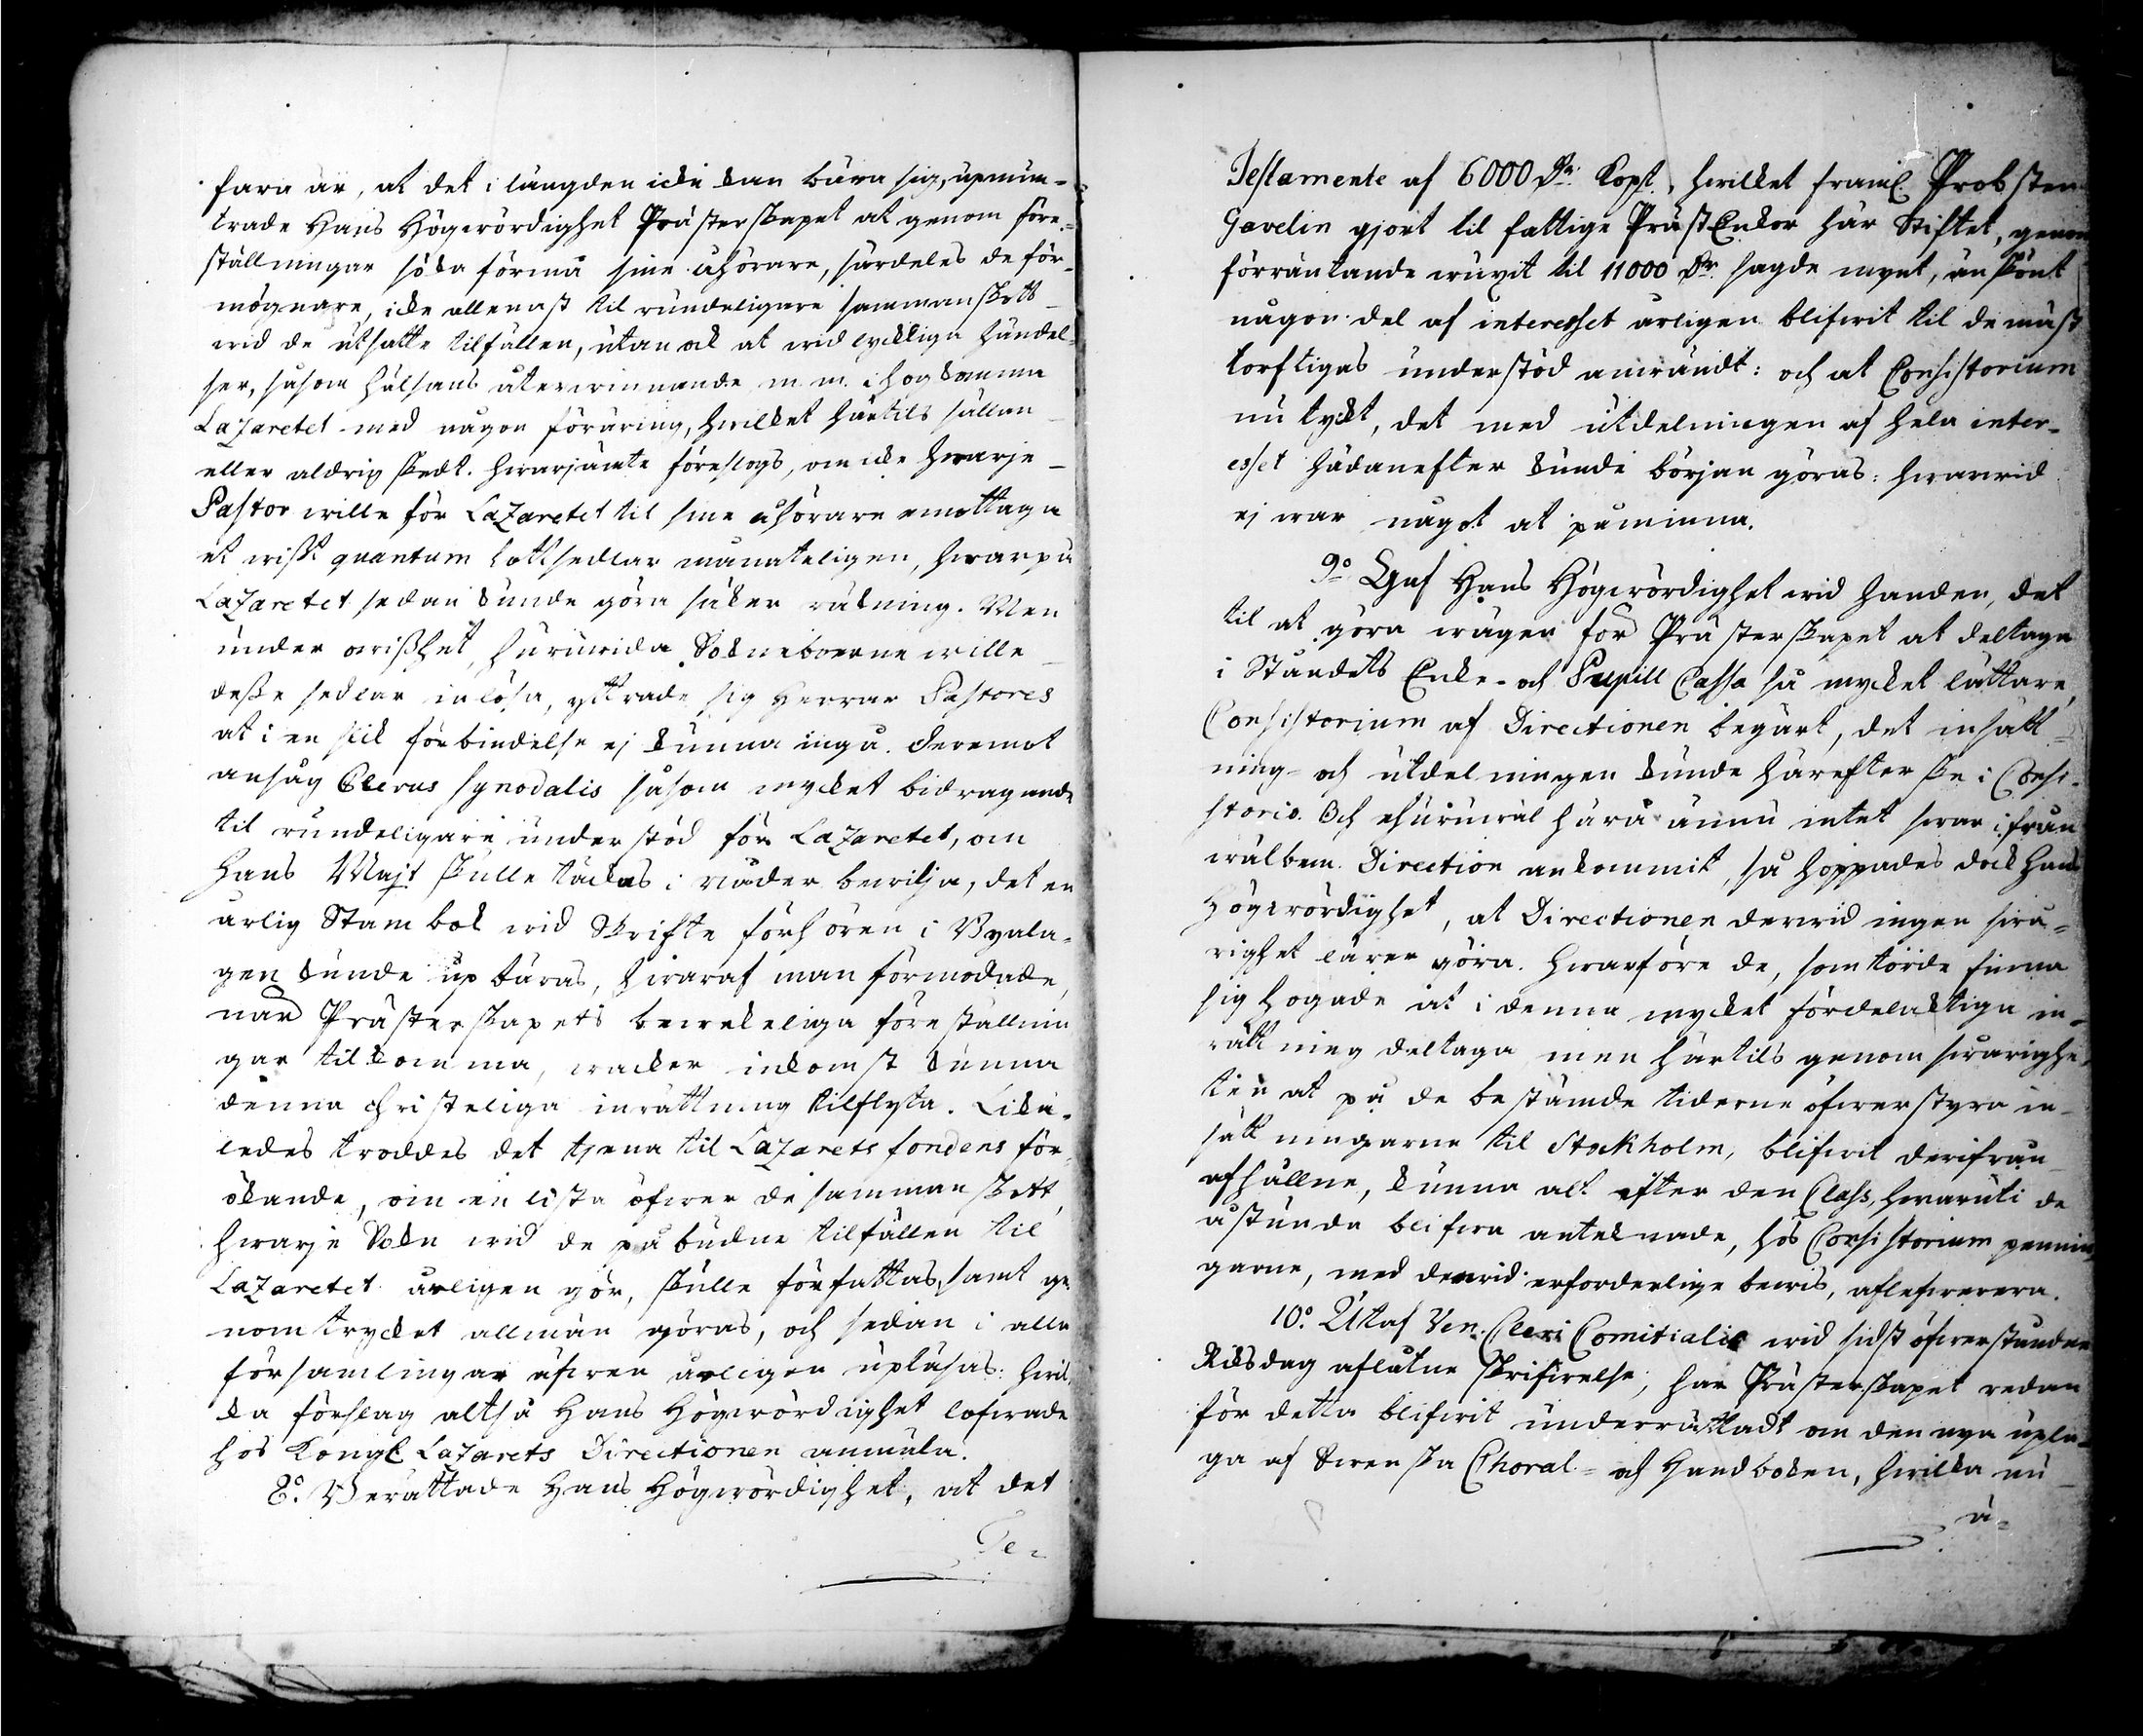 fara är, at det i längden icke kan bära sig, upmun-
trade Hans Högwördighet Prästerskapet at genom före-
ställningar söka förmå sine åhörare, särdeles de för-
mögnare, icke allenast til rundeligare sammanskott
wid de utsatte tilfällen, utan ock at wid lyckliga händel-
ser, såsom hälsans återwinnande m. m. ihogkomma
Lazaretet med någon föräring, hwilket härtils sällan
eller aldrig skedt. Hwarjämte föreslogs, om icke hwarje
Pastor wille för Lazaretet til sine åhörare emottaga
et wißt quantum lottsedlar månateligen, hwarpå
Lazaretet sedan kunde göra säker räkning. Men
under owißhet, huruwida Sokneboerne wille
deße sedlar inlösa, yttrade sig Herrar Pastores
at i en slik förbindelse ej kunna ingå. Deremot
ansåg Clerus synodalis såsom mycket bidragande
til rundeligare understöd för Lazaretet, om
Hans Majt skulle täckas i nåder bewilja, det en
årlig Stambok wid Skrifte förhören i Byala-
gen kunde upbäras, hwaraf man förmodade,
när Prästerskapets bewekeliga föreställnin
gar tilkomma, wacker inkomst kunna
denna christeliga inrättning tilflyta. Lika-
ledes troddes det tjena til Lazarets fondens för-
ökande, om en lista öfwer de sammanskott,
hwarje Sokn wid de påbudne tilfällen til
Lazaretet årligen gör, skulle författas, samt ge-
nom trycket allmän göras, och sedan i alla
församlingar äfwen årligen upläsas: hwil-
ka förslag altså Hans Högwördighet lofwade
hos Kongl Lazarets Directionen anmäla.
8:o Berättade Hans Högwördighet, at det
Te-
Testamente af 6000 Dr: Kopt., hwilket framl. Probsten
Gavelin gjort til fattige PrästEnkor här Stiftet, genom
förräntande wuxit til 11000 Dr. sagde mynt, änskönt
någon del af interesset årligen blifwit til de mäst
torftigas understöd användt: och at Consistorium
nu tyckt, det med utdelningen af hela inter-
esset hädanefter kunde början göras: hwarwid
ej war något at påminna.
9:o Gaf Hans Högwördighet wid handen, det
til at göra wägen för Prästerskapet at deltaga
i Ståndets Enke- och Pupill Cassa så mycket lättare,
Consistorium af Directionen begärt, det insätt-
ning- och utdelningen kunde härefter ske i Consi-
storio. Och ehuruwäl härå ännu intet swar ifrån
wälbem. Direction ankommit, så hoppades dock Hans
Högwördighet, at Directionen derwid ingen swå-
righet lärer göra. Hwarföre de, som törde finna
sig hogade at i denna mycket fördelaktiga in-
rättning deltaga men härtils genom swårighe-
ten at på de bestämde tiderne öfwerstyra in-
sättningarne til Stockholm, blifwit derifrån
afhållne, kunna alt efter den Class, hwaruti de
åstunda blifwa anteknade, hos Consistorium pennin
garne, med derwid erforderlige bewis, aflefwerera.
10:o Utaf Ven. Cleri Comitialis wid sidst öfwerståndne
Riksdag aflåtne skrifwelse, har Prästerskapet redan
för detta blifwit underrättadt om den nya upla-
ga af Swenska Choral- och Handboken, hwilka nu
å-